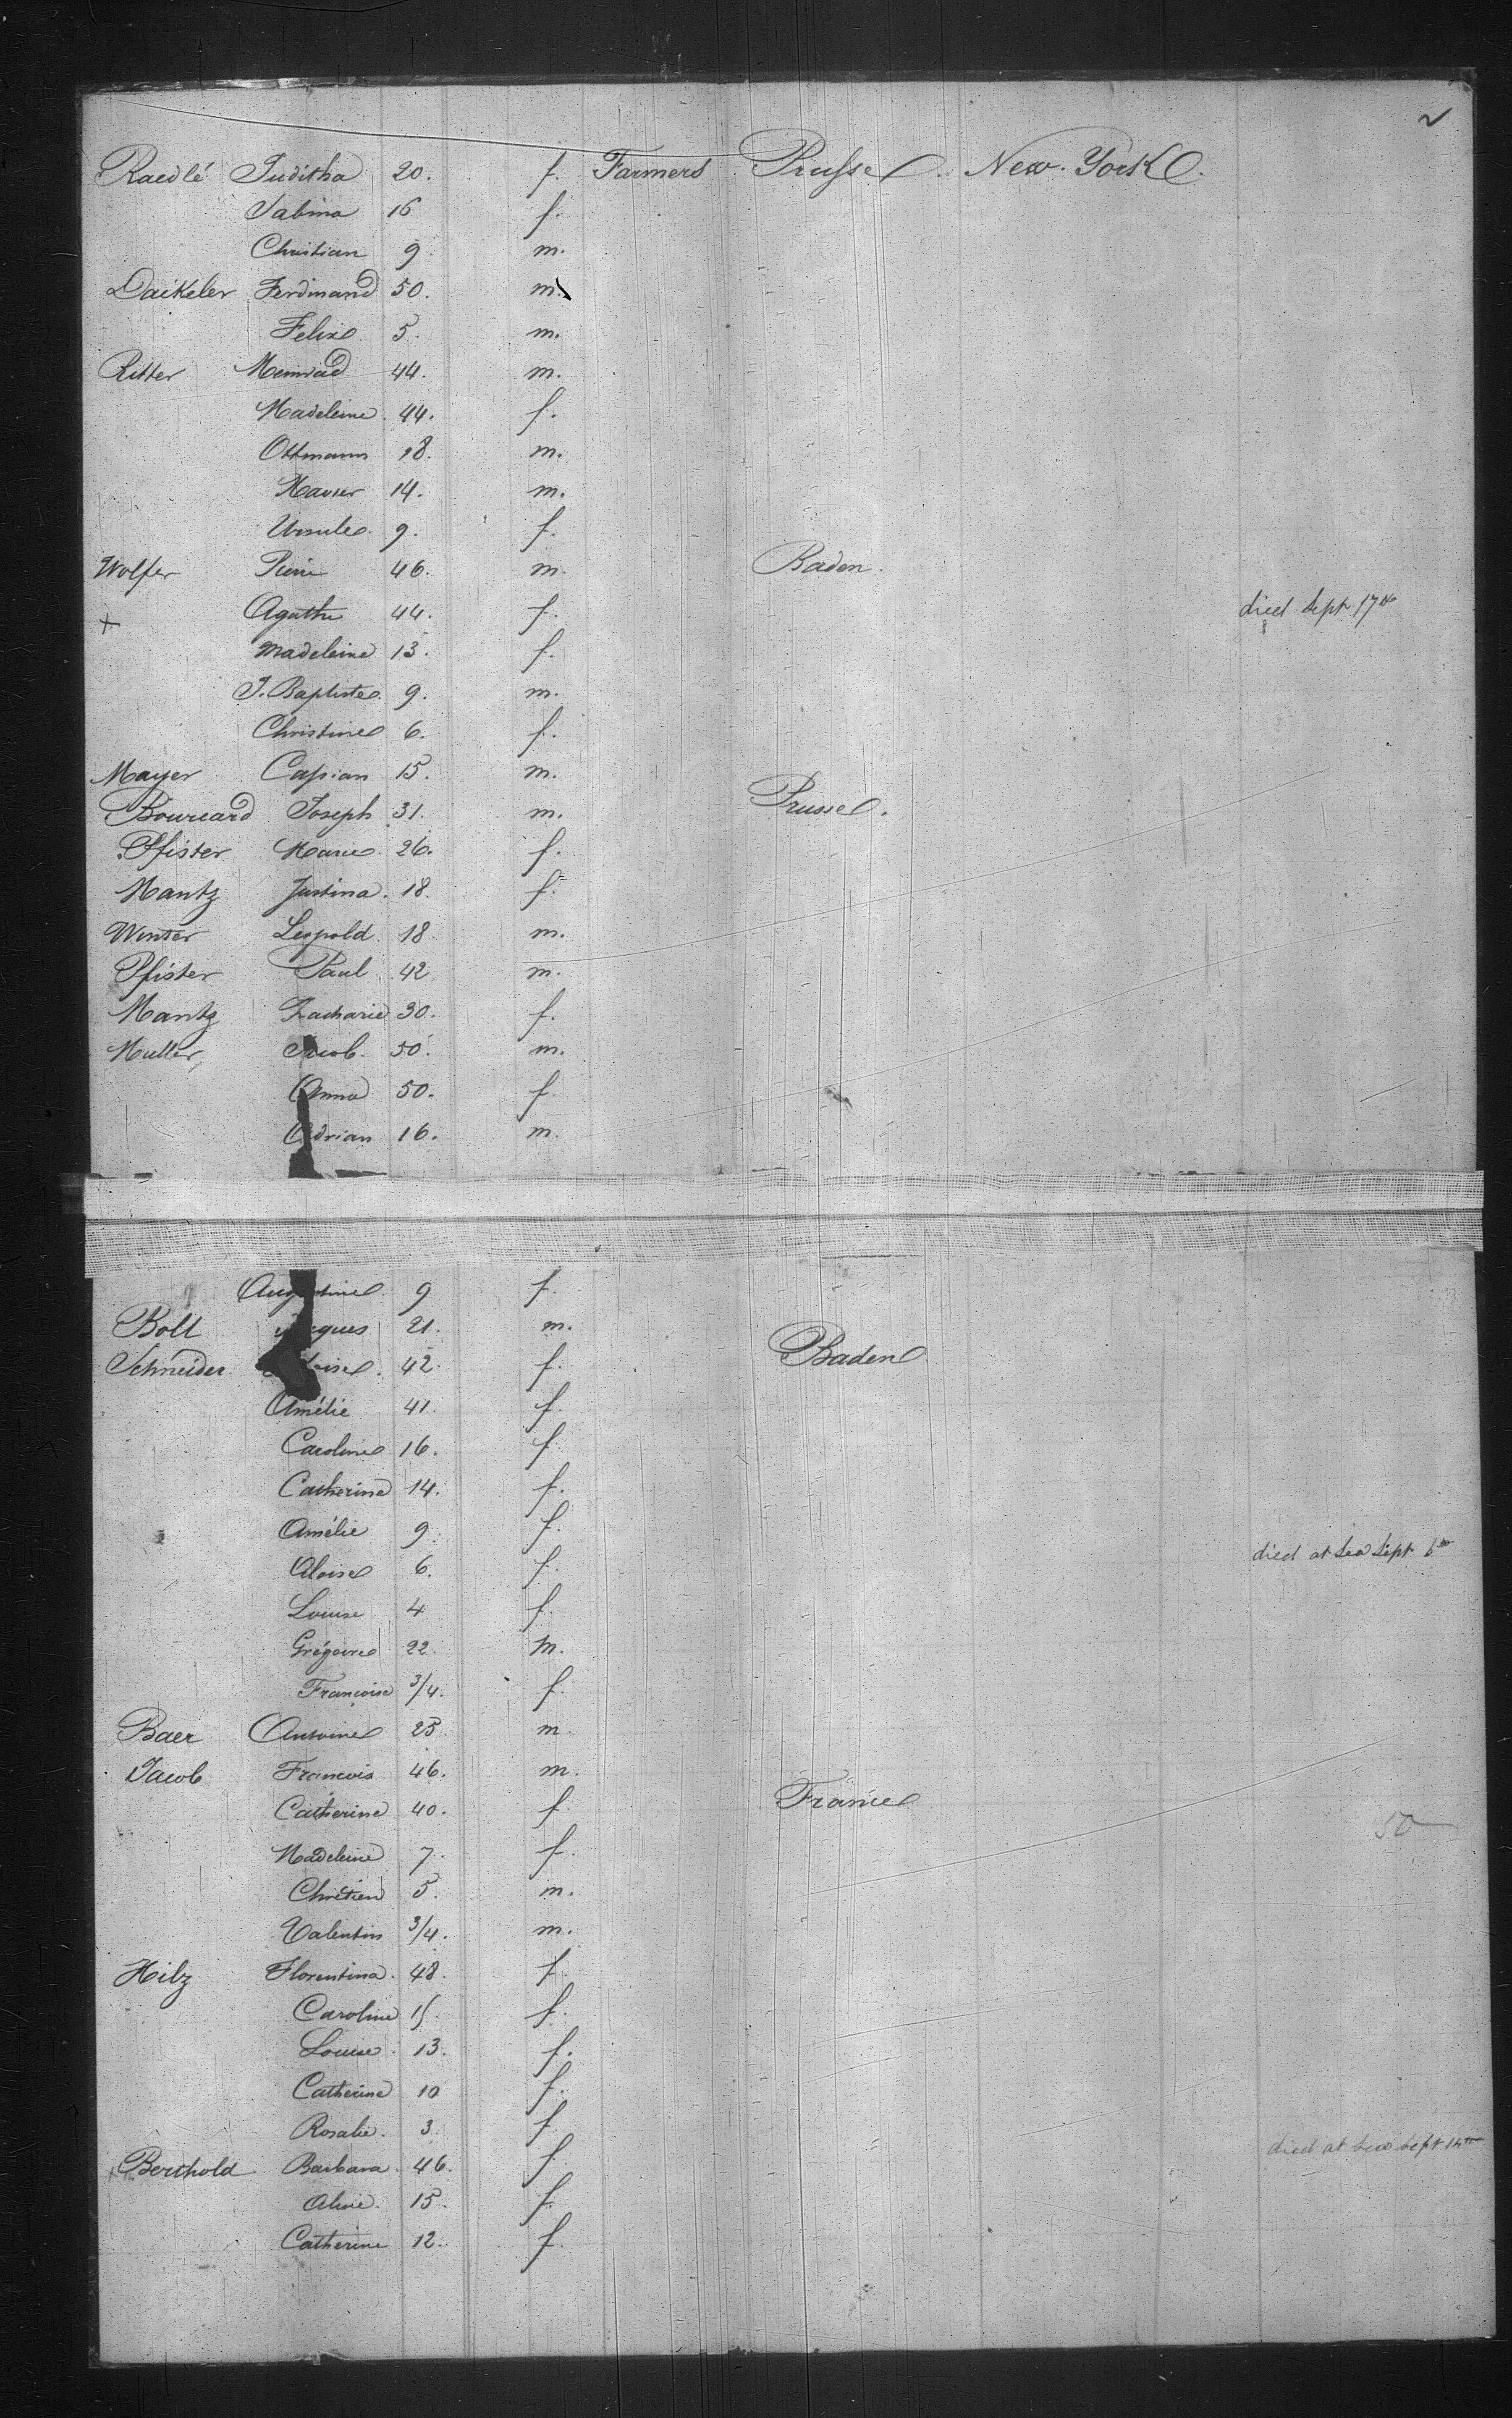 Raedlé Juditha 20. f. Farmers Prusse. New. York.
Sabina 16 f.
Christian 9. m.
Daikeler Ferdinand 50. m.
Felix 5. m.
Ritter Meinrad 44. m.
Madeleine. 44. f.
Ottmann 18. m.
Xavier 14. m.
Ursule. 9. f.
Wolfer Pierre 46. m. Baden.
+ Agathe 44. f. died Sept 17th
Madeleine 13. f.
J. Baptiste. 9. m.
Christine 6. f.
Mayer Casian 15. m.
Bourcard Joseph 31. m. Prusse.
Pfister Marie. 26. f.
Mantz Justina. 18. f.
Winter Leopold. 18 m.
Pfister Paul 42 m.
Mantz Zacharie 30. f.
Muller, Jacob. 50. m.
Anna 50. f.
Adrian 16. m.
Augustine 9 f.
Bolt Jacques 21. m.
Schneider 42. f. Baden
Amélie 41. f.
Caroline 16. f.
Catherine 14. f.
Amélie 9. f.
Aloise 6. f. died at Sea Sept 6th
Louise 4 f.
Grégoire 22. m.
Françoise 3/4. f.
Baer Antoine 25. m
Jacob François 46. m.
Catherine 40. f. France
Madeleine 7. f. 50
Chrétien 5. m.
Valentin 3/4. m.
Hilz Florentina. 48. f.
Caroline 15. f.
Louise. 13. f.
Catherine 10 f.
Rosalie. 3. f.
+ Berthold Barbara. 46. f. died at Sea Sept 14th
15. f.
Catherine 12. f.